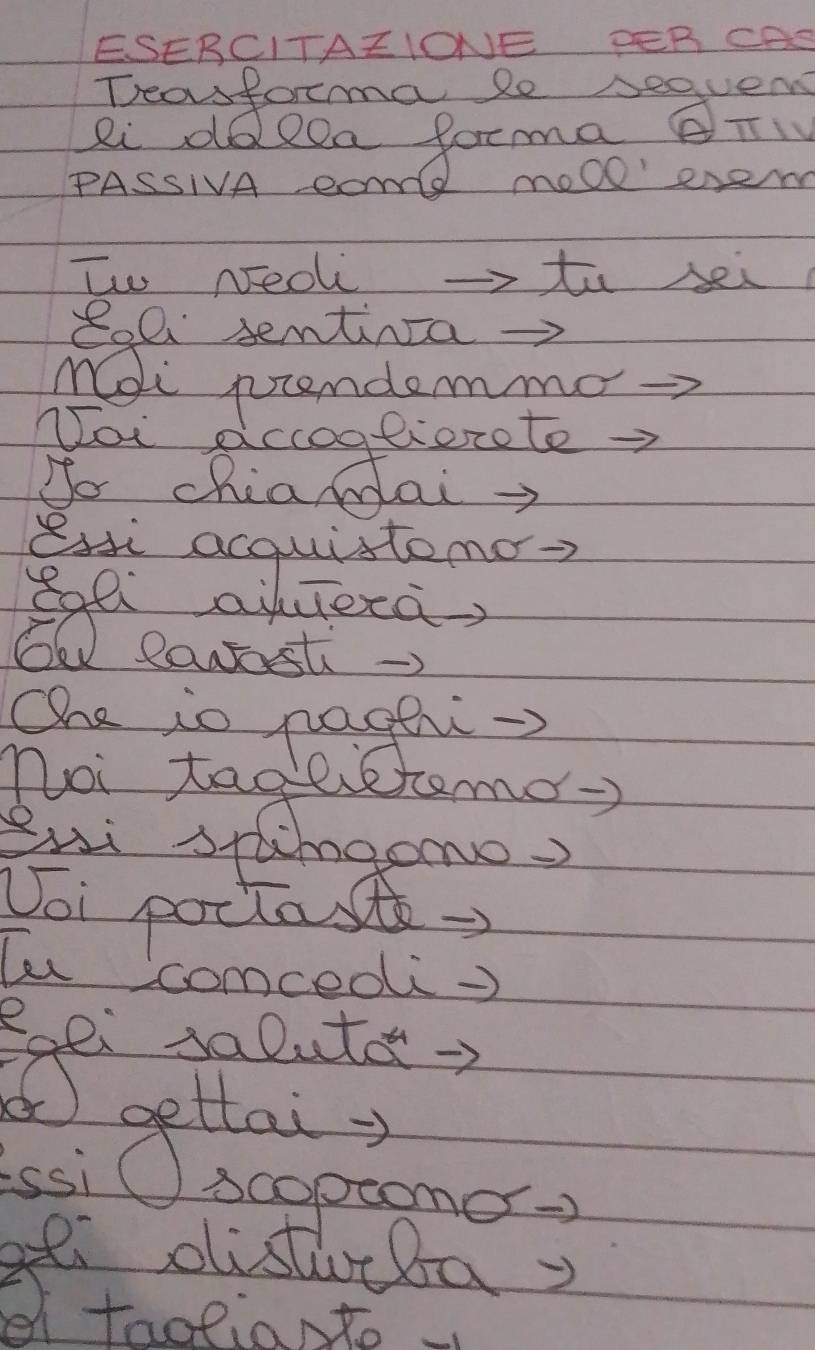 ESERCITAZIONE PER CAS
Trasforma le seguen
li dalla forma ATTIV
PASSIVA come nell'esem
Tu vedi → tu sei
Egli sentiva →
Noi prendemmo →
Voi accoglierete →
Io chiamai →
Essi acquistano →
Egli aiuterà →
Tu lavasti →
Che io paghi →
Noi taglieremo →
Essi spingono →
Voi portaste →
Tu concedi →
Egli saluta →
Io gettai →
Essi scoprono →
gli disturba →
oi tagliaste →